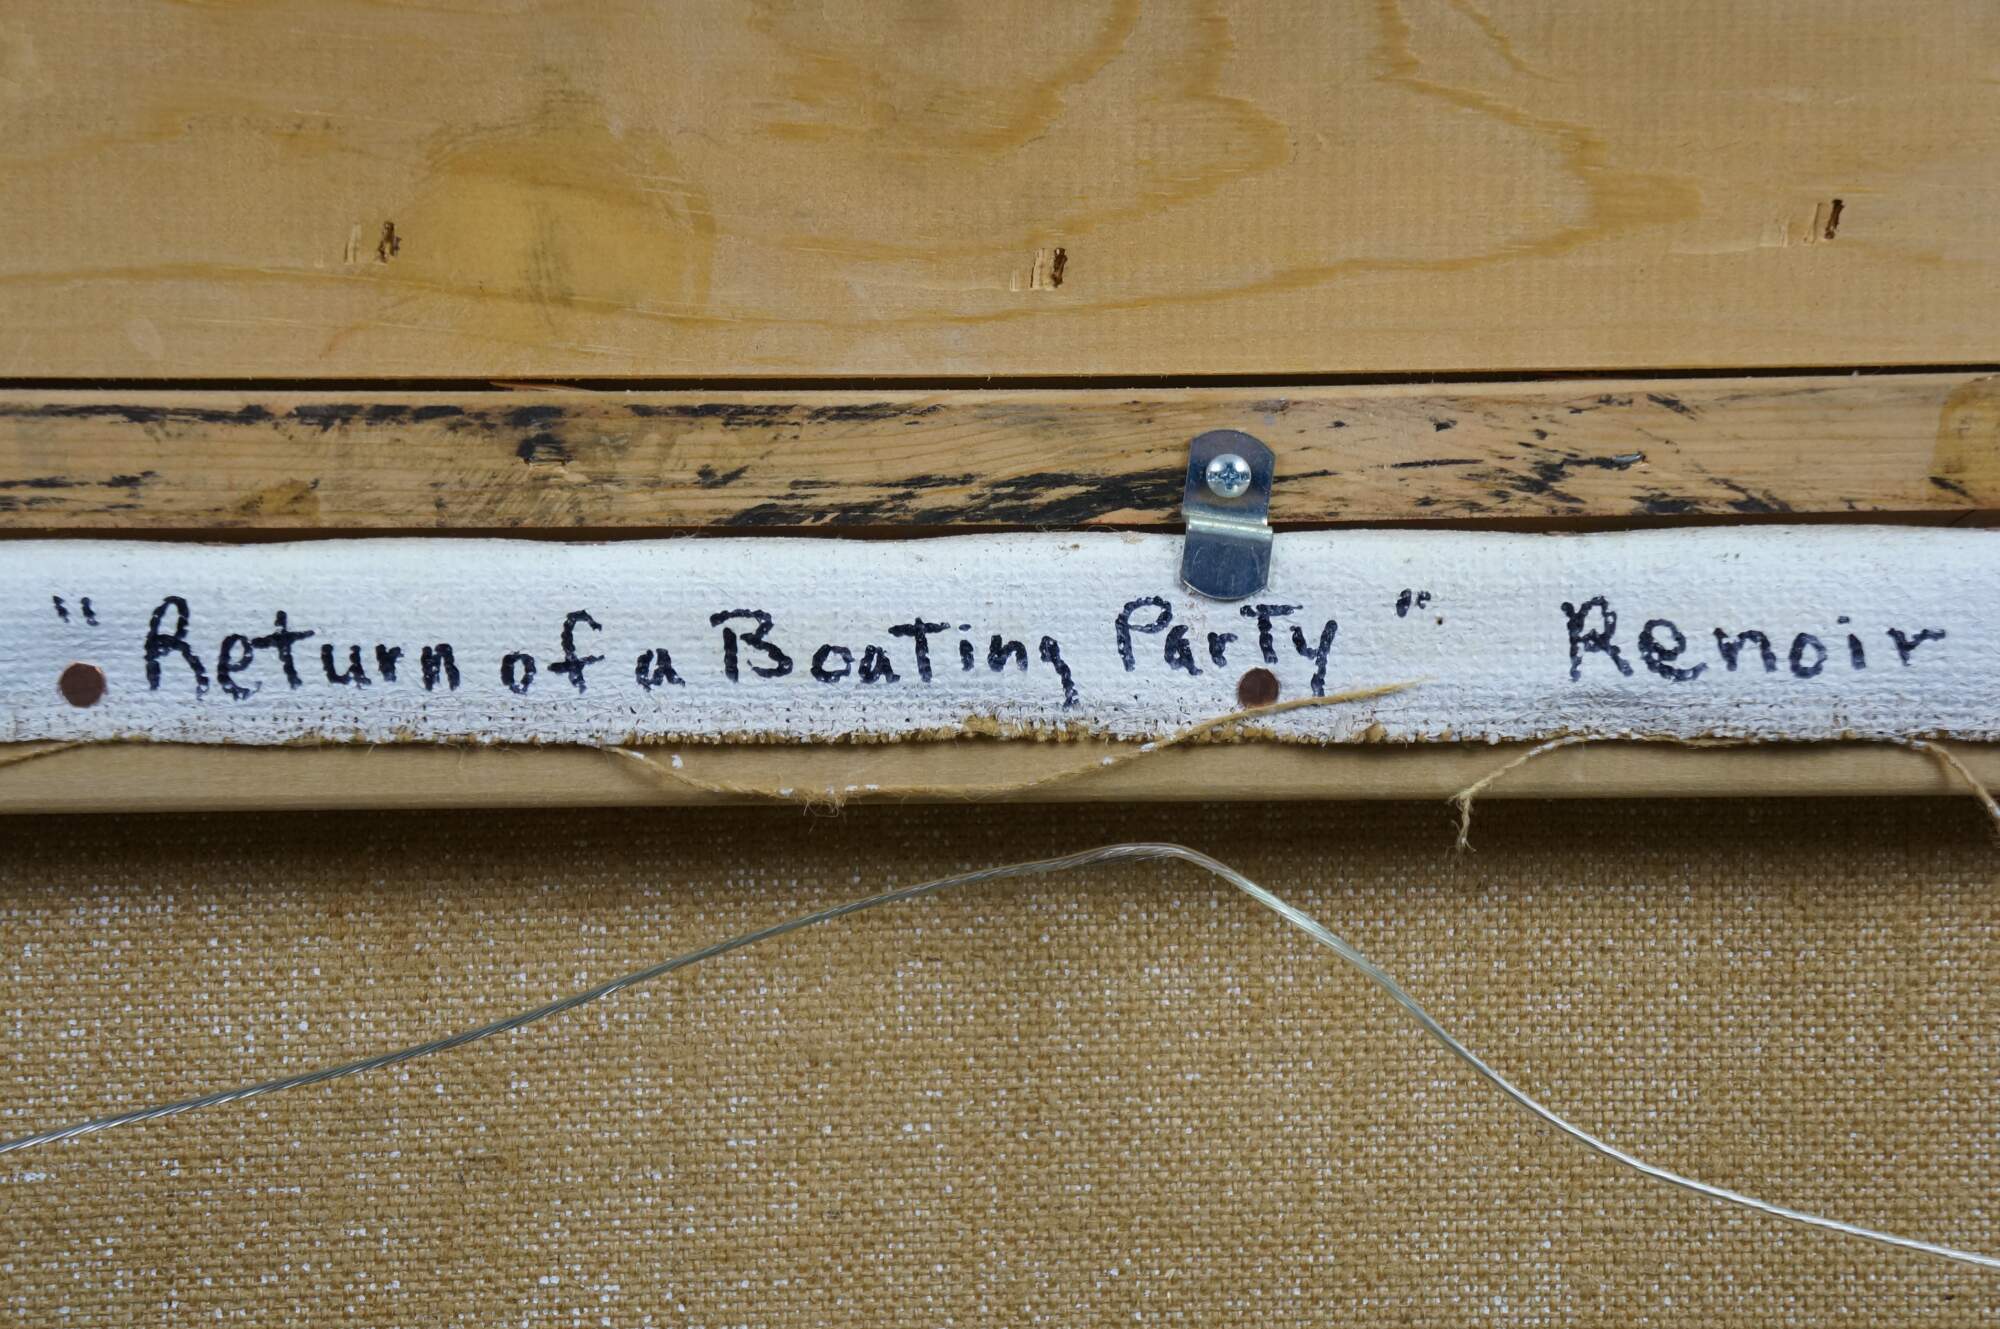 "Return of a Boating Party" Renoir